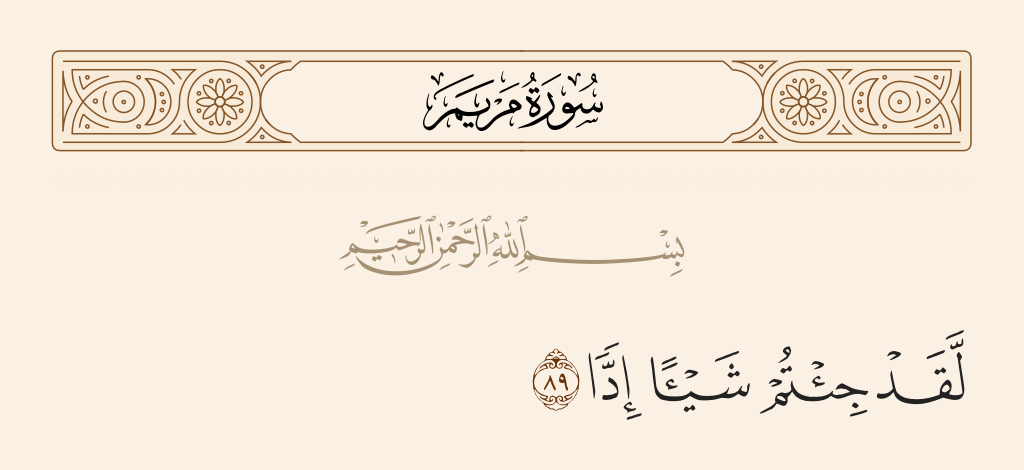 سُورَةُ مَرْيَمَ
بِسْمِ ٱللَّهِ ٱلرَّحْمَٰنِ ٱلرَّحِيمِ
لَّقَدْ جِئْتُمْ شَيْـًٔا إِدًّا ٨٩